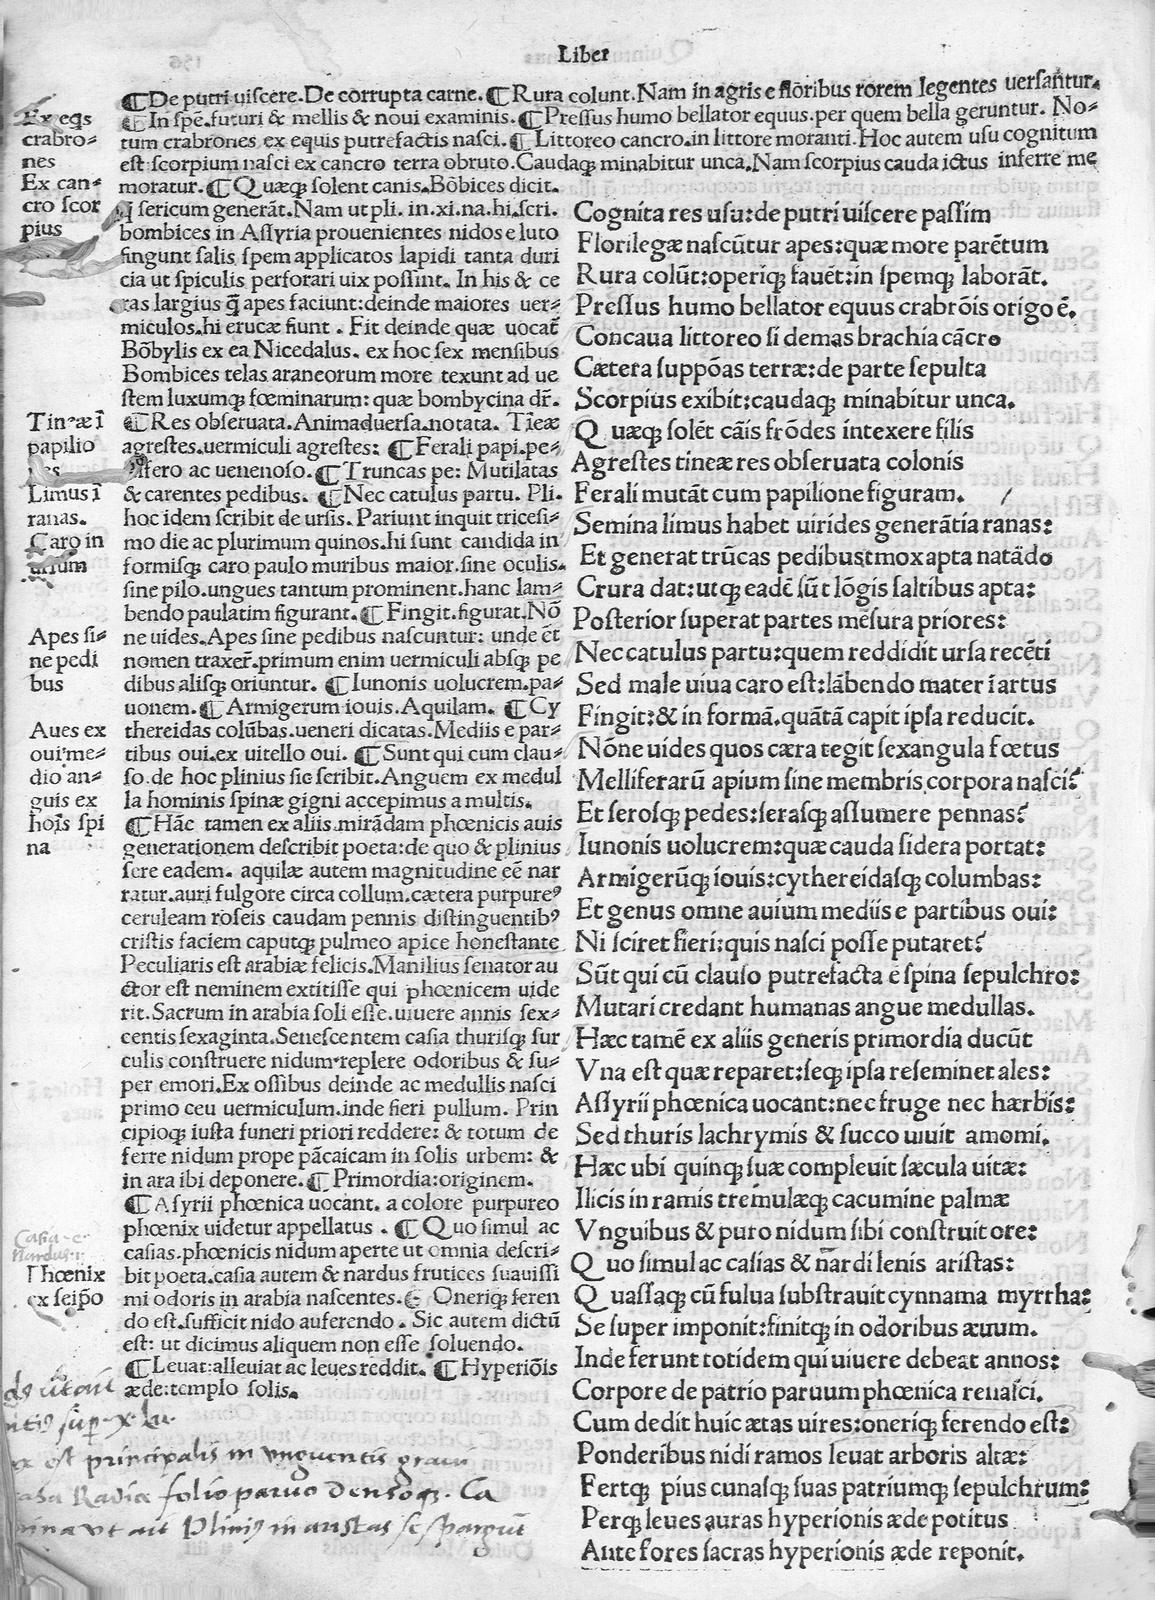 Liber
¶De putri uiscere.De corrupta carne.¶Rura colunt.Nam in agris e flōribus rorem legentes uersantur.
¶In spē.futuri & mellis & noui examinis.¶Pressus humo bellator equus.per quem bella geruntur. No-
tum crabrones ex equis putrefactis nasci.¶Littoreo cancro.in littore moranti.Hoc autem usu cognitum
est scorpium nasci ex cancro terra obruto.Caudaqꝫ minabitur unca.Nam scorpius cauda ictus inferre me
moratur.¶Quæqꝫ solent canis.Bōbices dicit.
sericum generāt.Nam ut pli. in.xi.na.hi.scri.
bombices in Assyria prouenientes nidos e luto
fingunt salis spem applicatos lapidi tanta duri
cia ut spiculis perforari uix possint. In his & ce
ras largius q̄ apes faciunt:deinde maiores uer-
miculos.hi erucæ fiunt . Fit deinde quæ uocat̄
Bōbylis ex ea Nicedalus. ex hoc sex mensibus
Bombices telas araneorum more texunt ad ue
stem luxumqꝫ fœminarum: quæ bombycina dr̄.
¶Res obseruata.Animaduersa.notata. Tieæ
agrestes.uermiculi agrestes: ¶Ferali papi.pe-
stifero ac uenenoso.¶Truncas pe: Mutilatas
& carentes pedibus. ¶Nec catulus partu. Pli.
hoc idem scribit de ursis. Pariunt inquit tricesi-
mo die ac plurimum quinos.hi sunt candida in
formisqꝫ caro paulo muribus maior.sine oculis.
sine pilo.ungues tantum prominent.hanc lam-
bendo paulatim figurant.¶Fingit.figurat.Nō
ne uides.Apes sine pedibus nascuntur: unde et
nomen traxer̄.primum enim uermiculi absqꝫ pe
dibus alisqꝫ oriuntur. ¶Iunonis uolucrem.pa-
uonem.¶Armigerum iouis.Aquilam. ¶Cy
thereidas colūbas.ueneri dicatas.Mediis e par-
tibus oui.ex uitello oui. ¶Sunt qui cum clau-
so.de hoc plinius sic scribit.Anguem ex medul
la hominis spinæ gigni accepimus a multis.
¶Hāc tamen ex aliis.mirādam phœnicis auis
generationem describit poeta:de quo & plinius
fere eadem. aquilæ autem magnitudine eē nar
ratur.auri fulgore circa collum.cætera purpureꝰ
ceruleam roseis caudam pennis distinguentibꝰ
cristis faciem caputqꝫ pulmeo apice honestante
Peculiaris est arabiæ felicis.Manilius senator au
ctor est neminem extitisse qui phœnicem uide
rit.Sacrum in arabia soli esse.uiuere annis sex-
centis sexaginta.Senescentem casia thurisqꝫ sur
culis construere nidum.replere odoribus & su-
per emori.Ex ossibus deinde ac medullis nasci
primo ceu uermiculum.inde fieri pullum. Prin
cipioqꝫ iusta funeri priori reddere: & totum de
ferre nidum prope pācaicam in solis urbem: &
in ara ibi deponere.¶Primordia:originem.
¶Asyrii phœnica uocant. a colore purpureo
phœnix uidetur appellatus . ¶Quo simul ac
casias.phœnicis nidum aperte ut omnia descri-
bit poeta.casia autem & nardus frutices suauissi
mi odoris in arabia nascentes.¶Oneriqꝫ feren
do est.sufficit nido auferendo . Sic autem dictū
est: ut dicimus aliquem non esse soluendo.
¶Leuat:alleuiat ac leues reddit.¶Hyperiōis
æde:templo solis.
Ex eqs
crabro-
nes
Ex can-
cro scor
pius
Tineæ ī
papilio
Limus ī
ranas.
Caro in
Apes si-
ne pedi
bus
Aues ex
oui me-
dio an-
guis ex
hoīs spi
na
Casia e
Nardus
Phœnix
ex seip̄o
est principalis in unguentis
folio paruo densoqꝫ. Ca
ut ait Plinius in aristas se spargunt
Cognita res usu:de putri uiscere passim
Florilegæ nascūtur apes:quæ more parētum
Rura colūt:operiqꝫ fauēt:in spemqꝫ laborāt.
Pressus humo bellator equus crabrōis origo ē.
Concaua littoreo si demas brachia cācro
Cætera suppōas terræ:de parte sepulta
Scorpius exibit:caudaqꝫ minabitur unca.
Quæqꝫ solēt cāis frōdes intexere filis
Agrestes tineæ res obseruata colonis
Ferali mutāt cum papilione figuram.
Semina limus habet uirides generātia ranas:
Et generat trūcas pedibus:mox apta natādo
Crura dat:utqꝫ eadē sūt lōgis saltibus apta:
Posterior superat partes mēsura priores:
Nec catulus partu:quem reddidit ursa recēti
Sed male uiua caro est:lābendo mater ī artus
Fingit:& in formā.quātā capit ipsa reducit.
Nōne uides quos cæra tegit sexangula fœtus
Melliferarū apium sine membris corpora nasci?
Et serosqꝫ pedes:serasqꝫ assumere pennas?
Iunonis uolucrem:quæ cauda sidera portat:
Armigerūqꝫ iouis:cythereidasqꝫ columbas:
Et genus omne auium mediis e partibus oui:
Ni sciret fieri:quis nasci posse putaret?
Sūt qui cū clauso putrefacta e spina sepulchro:
Mutari credant humanas angue medullas.
Hæc tamē ex aliis generis primordia ducūt
Vna est quæ reparet:seqꝫ ipsa reseminet ales:
Assyrii phœnica uocant:nec fruge nec hærbis:
Sed thuris lachrymis & succo uiuit amomi.
Hæc ubi quinqꝫ suæ compleuit sæcula uitæ:
Ilicis in ramis tremulæqꝫ cacumine palmæ
Vnguibus & puro nidum sibi construit ore:
Quo simul ac casias & nardi lenis aristas:
Quassaqꝫ cū fulua substrauit cynnama myrrha:
Se super imponit:finitqꝫ in odoribus æuum.
Inde ferunt totidem qui uiuere debeat annos:
Corpore de patrio paruum phœnica renasci.
Cum dedit huic ætas uires:oneriqꝫ ferendo est:
Ponderibus nidi ramos leuat arboris altæ:
Fertqꝫ pius cunasqꝫ suas patriumqꝫ sepulchrum:
Perqꝫ leues auras hyperionis æde potitus
Ante fores sacras hyperionis æde reponit.